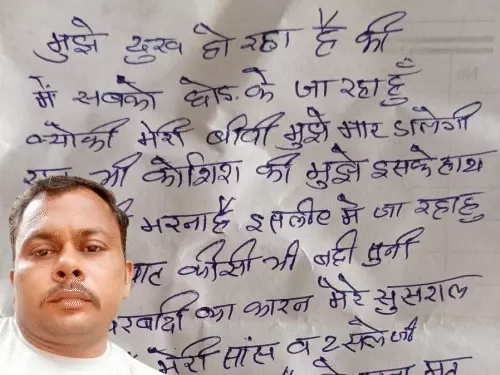 मुझे दुख हो रहा है की
में सबको छोड़ के जा रहा हुँ
क्योकी मेरी बीवी मुझे मार डालेगी
भी कोशिश की मुझे इसके हाथ
मरना है इसलीए मे जा रहा हु
कीसी भी नही सुनी
का कारन मेरे सुसराल
मेरी सांस व 2 साले जी